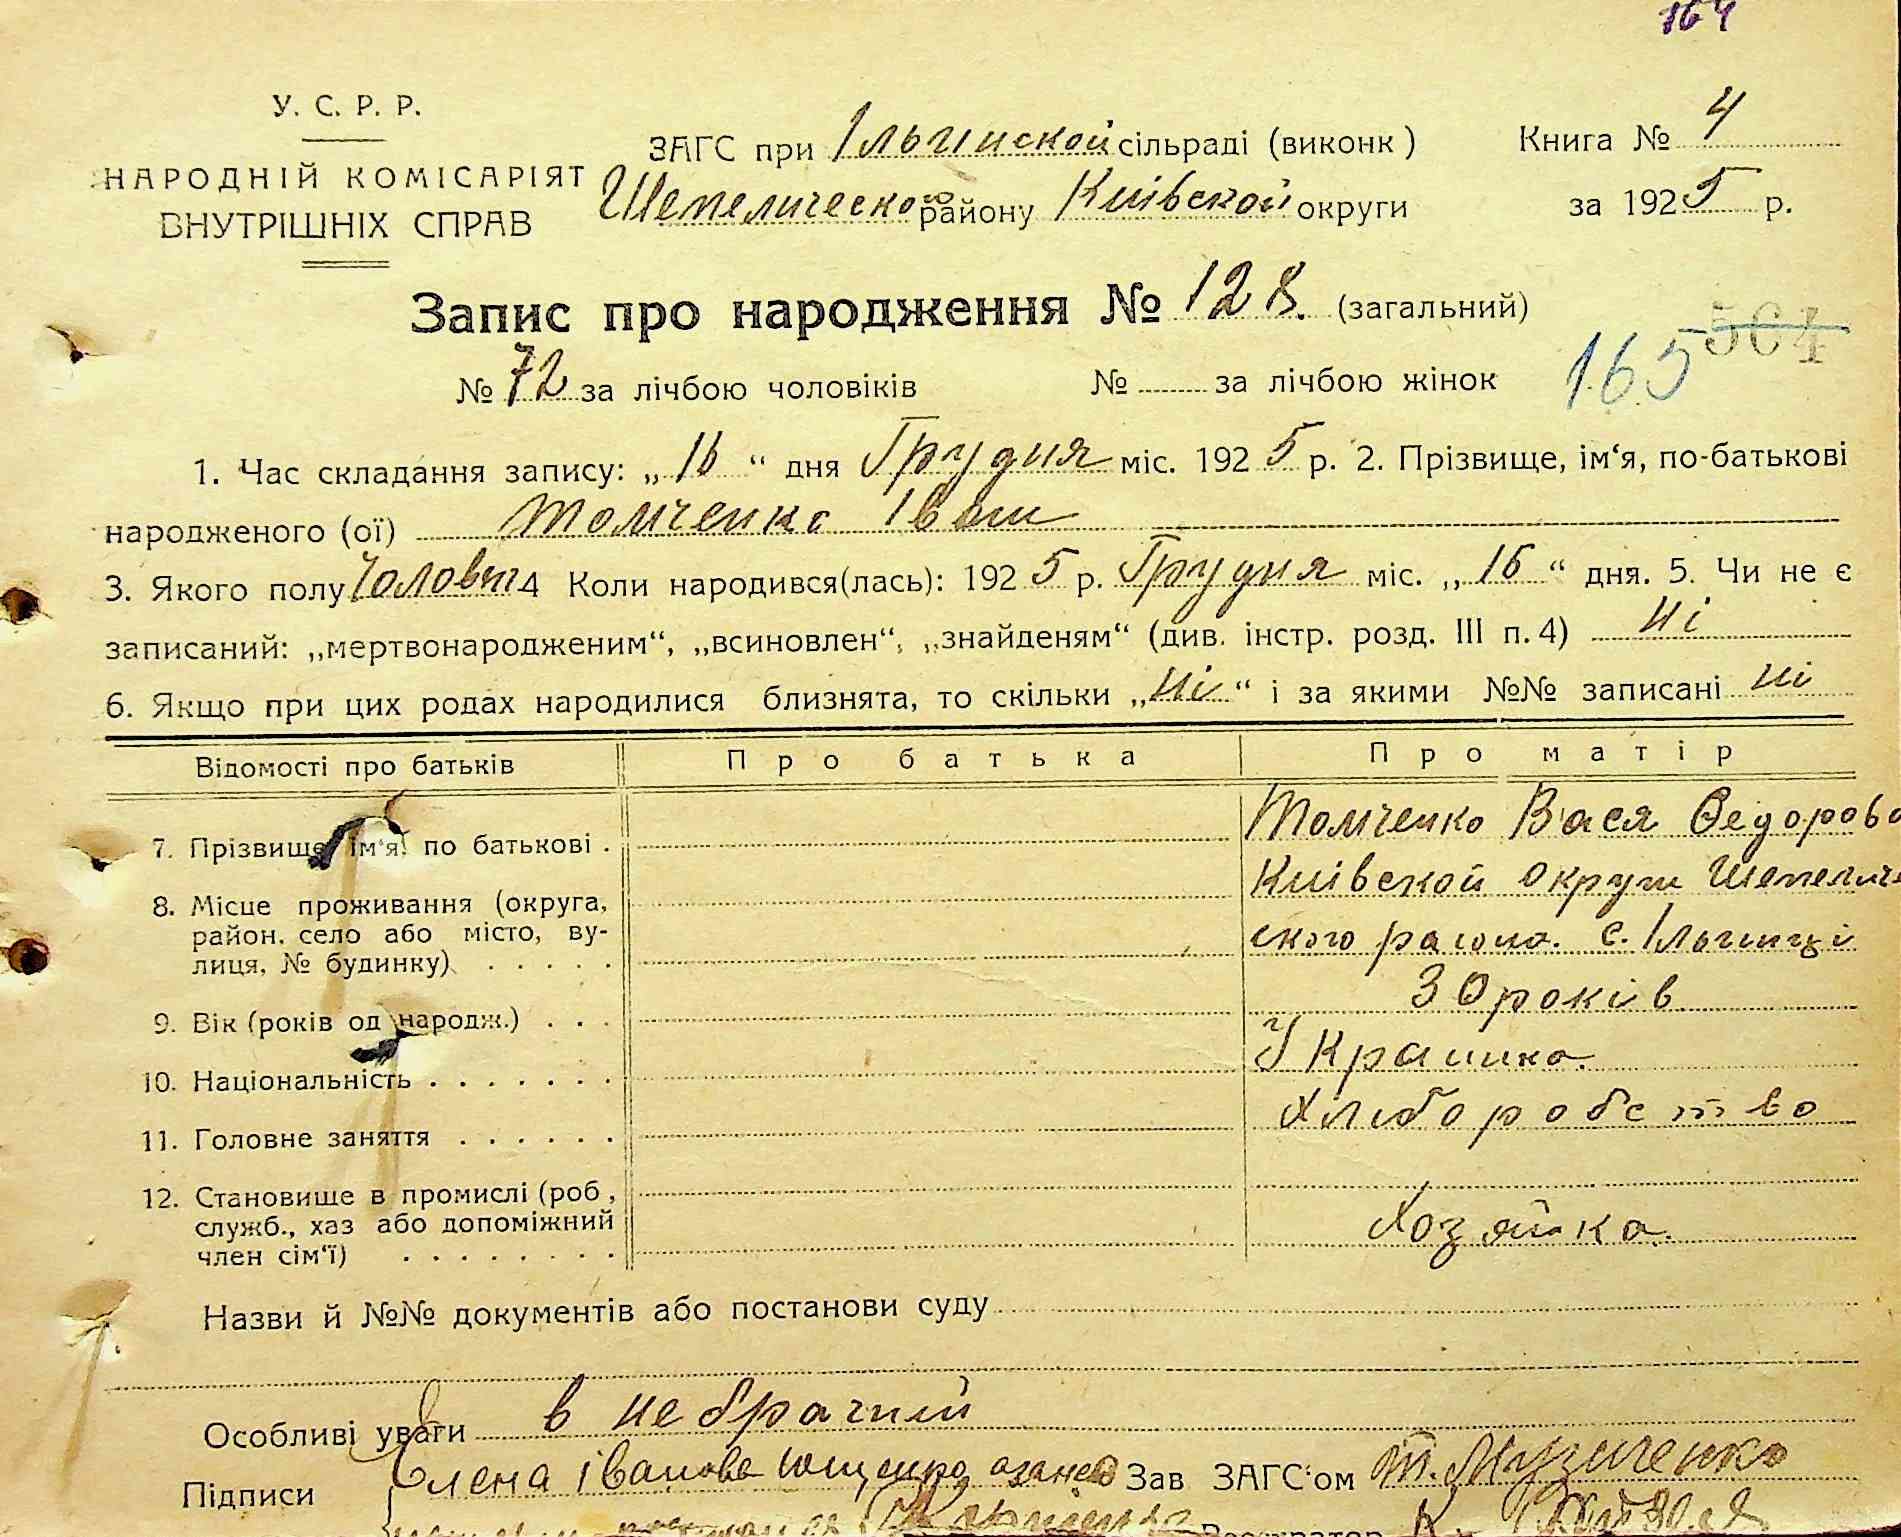 164
У. С. Р. Р.
НАРОДНІЙ КОМІСАРІЯТ
ВНУТРІШНІХ СПРАВ
ЗАГС при Ільгинской сільраді (виконк)
Шепелическою району Київской округи
Книга № 4
за 1925 р.
Запис про народження № 128. (загальний)
564
165
№ 72 за лічбою чоловіків № за лічбою жінок
1. Час складання запису: „16“ дня Грудня міс. 1925 р. 2. Прізвище, ім‘я, по-батькові
народженого (ої) Томченко Іван
3. Якого полу Чоловіч 4 Коли народився(лась): 1925 р. Грудня міс. „16“ дня. 5. Чи не є
записаний: „мертвонародженим“, „всиновлен“, „знайденям“ (див. інстр. розд. III п. 4) ні
6. Якщо при цих родах народилися близнята, то скільки „ні“ і за якими №№ записані ні
Відомості про батьків Про батька Про матір
7. Прізвище ім‘я по батькові . Томченко Вася Ѳедорово
8. Місце проживання (округа, Київской округи Шепеличе
район. село або місто, ву-
лиця, № будинку) . . . . . ского раиона. с. Ільгинці
9. Вік (років од народж.) . . . 30 років
10. Національність . . . . . . . Украинка.
11. Головне заняття . . . . . . Хлиборобство
12. Становище в промислі (роб ,
служб., хаз або допоміжний Хозяйка.
член сім‘ї) . . . . . . . .
Назви й №№ документів або постанови суду
Особливі уваги в небрачний
Підписи Елена Іванова Ющенко Зав ЗАГС‘ом Т. Музиченко
Реєстратор